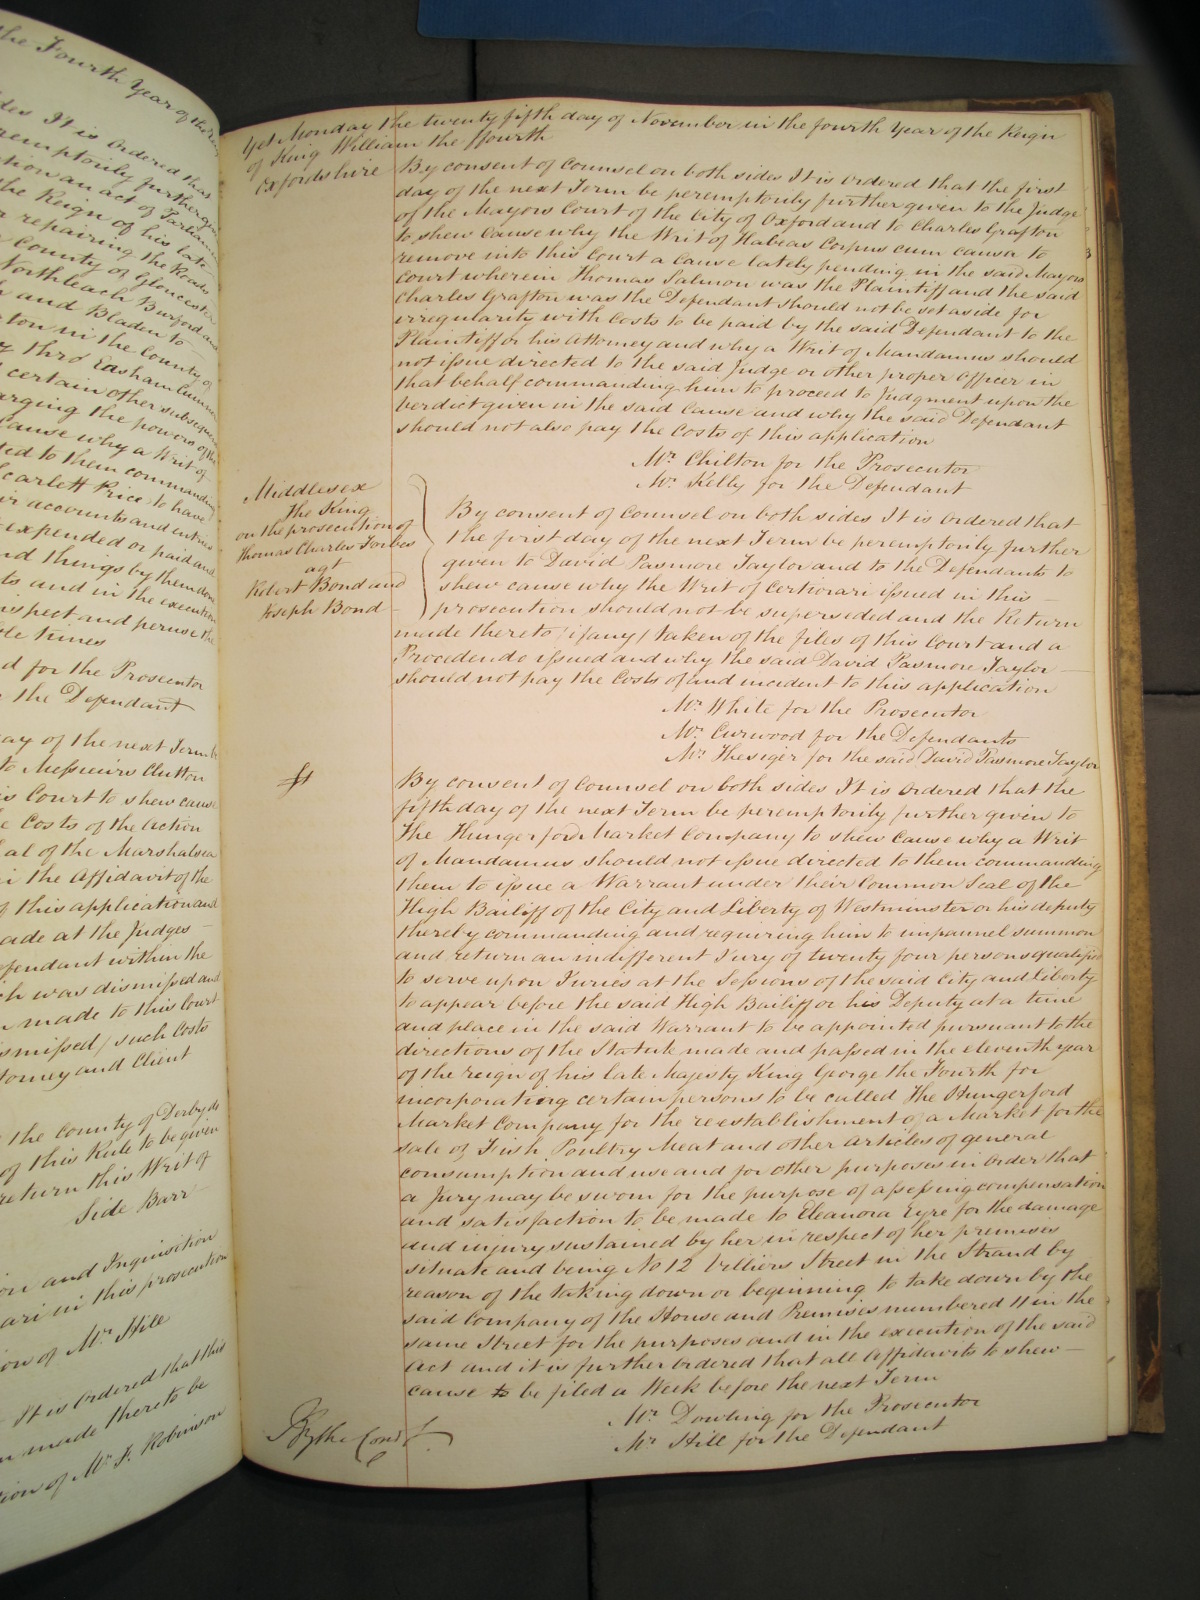 the Fourth Year of the
des It is Ordered that
peremptorily further given
tion an act of Parliament
the Reign of his late
r repairing the Roads
County of Gloucester
Northleach Burford and
h and Bladen to
ton in the County of
thro Ensham
certain other subsequent
arging the powers of the
Cause why a Writ of
ted to them commanding
Scarlett Price to have
ir accounts and entries
expended or paid and
nd things by them done
ts and in the execution
nspect and peruse the
ble times
d for the Prosecutor
the Defendant
ay of the next Term be
to Messieurs Clutton
is Court to shew cause
e Costs of the action
al of the Marshalsea
i the Affidavit of the
of this application and
ade at the Judges
efendant within the
ch was dismissed and
n made to this Court
ismissed / such Costs
torney and Client
the County of Derby do
of this Rule to be given
return this Writ of
Side Barr
ion and Inquisition
ari in this prosecution
ion of Mr Hill
It is Ordered that this
n made thereto be
tion of Mr F. Robinson
Yet Monday the twenty fifth day of November in the fourth Year of the Reign
of King William the ffourth
Oxfordshire By consent of Counsel on both sides It is Ordered that the first
day of the next Term be peremptorily further given to the Judge
of the Mayors Court of the City of Oxford and to Charles Grafton
to shew Cause why the Writ of Habeas Corpus cum causa to
remove into this Court a Cause lately pending in the said Mayors
Court wherein Thomas Salmon was the Plaintiff and the said
Charles Grafton was the Defendant should not be set aside for
irregularity with Costs to be paid by the said Defendant to the
Plaintiff or his Attorney and why a Writ of Mandamus should
not issue directed to the said Judge or other proper Officer in
that behalf commanding him to proceed to Judgment upon the
verdict given in the said Cause and why the said Defendant
should not also pay the Costs of this application
Mr Chilton for the Prosecutor
Mr Kelly for the Defendant
Middlesex
The King
on the prosecution of
Thomas Charles Forbes
agt
Robert Bond and
Joseph Bond
By consent of Counsel on both sides It is Ordered that
the first day of the next Term be peremptorily further
given to David Pasmore Taylor and to the Defendants to
shew cause why the Writ of Certiorari issued in this
prosecution should not be superseded and the Return
made thereto / if any / taken of the files of this Court and a
Procedendo issued and why the said David Pasmore Taylor
should not pay the Costs of and incident to this application
Mr White for the Prosecutor
Mr Curwood for the Defendants
Mr Thesiger for the said David Pasmore Taylor
By consent of Counsel on both sides It is Ordered that the
fifth day of the next Term be peremptorily further given to
The Hungerford Market Company to shew Cause why a Writ
of Mandamus should not issue directed to them commanding
them to issue a Warrant under their Common Seal of the
High Bailiff of the City and Liberty of Westminster or his deputy
thereby commanding and requiring him to impannel summon
and return an indifferent Jury of twenty four persons qualified
to serve upon Juries at the Sessions of the said City and liberty
to appear before the said High Bailiff or his Deputy at a time
and place in the said Warrant to be appointed pursuant to the
directions of the Statute made and passed in the eleventh year
of the reign of his late Majesty King George the Fourth for
incorporating certain persons to be called The Hungerford
Market Company for the reestablishment of a Market for the
sale of Fish Poultry Meat and other articles of general
consumption and use and for other purposes in Order that
a Jury may be sworn for the purpose of assessing compensation
and satisfaction to be made to Eleanora Eyre for the damage
and injury sustained by her in respect of her premises
situate and being No 12 Villiers Street in the Strand by
reason of the taking down or beginning to take down by the
said Company of the House and Premises numbered 11 in the
same Street for the purposes and in the execution of the said
Act and it is further Ordered that all Affidavits to shew
cause to be filed a Week before the next Term
Mr Dowling for the Prosecutor
Mr Hill for the Defendant